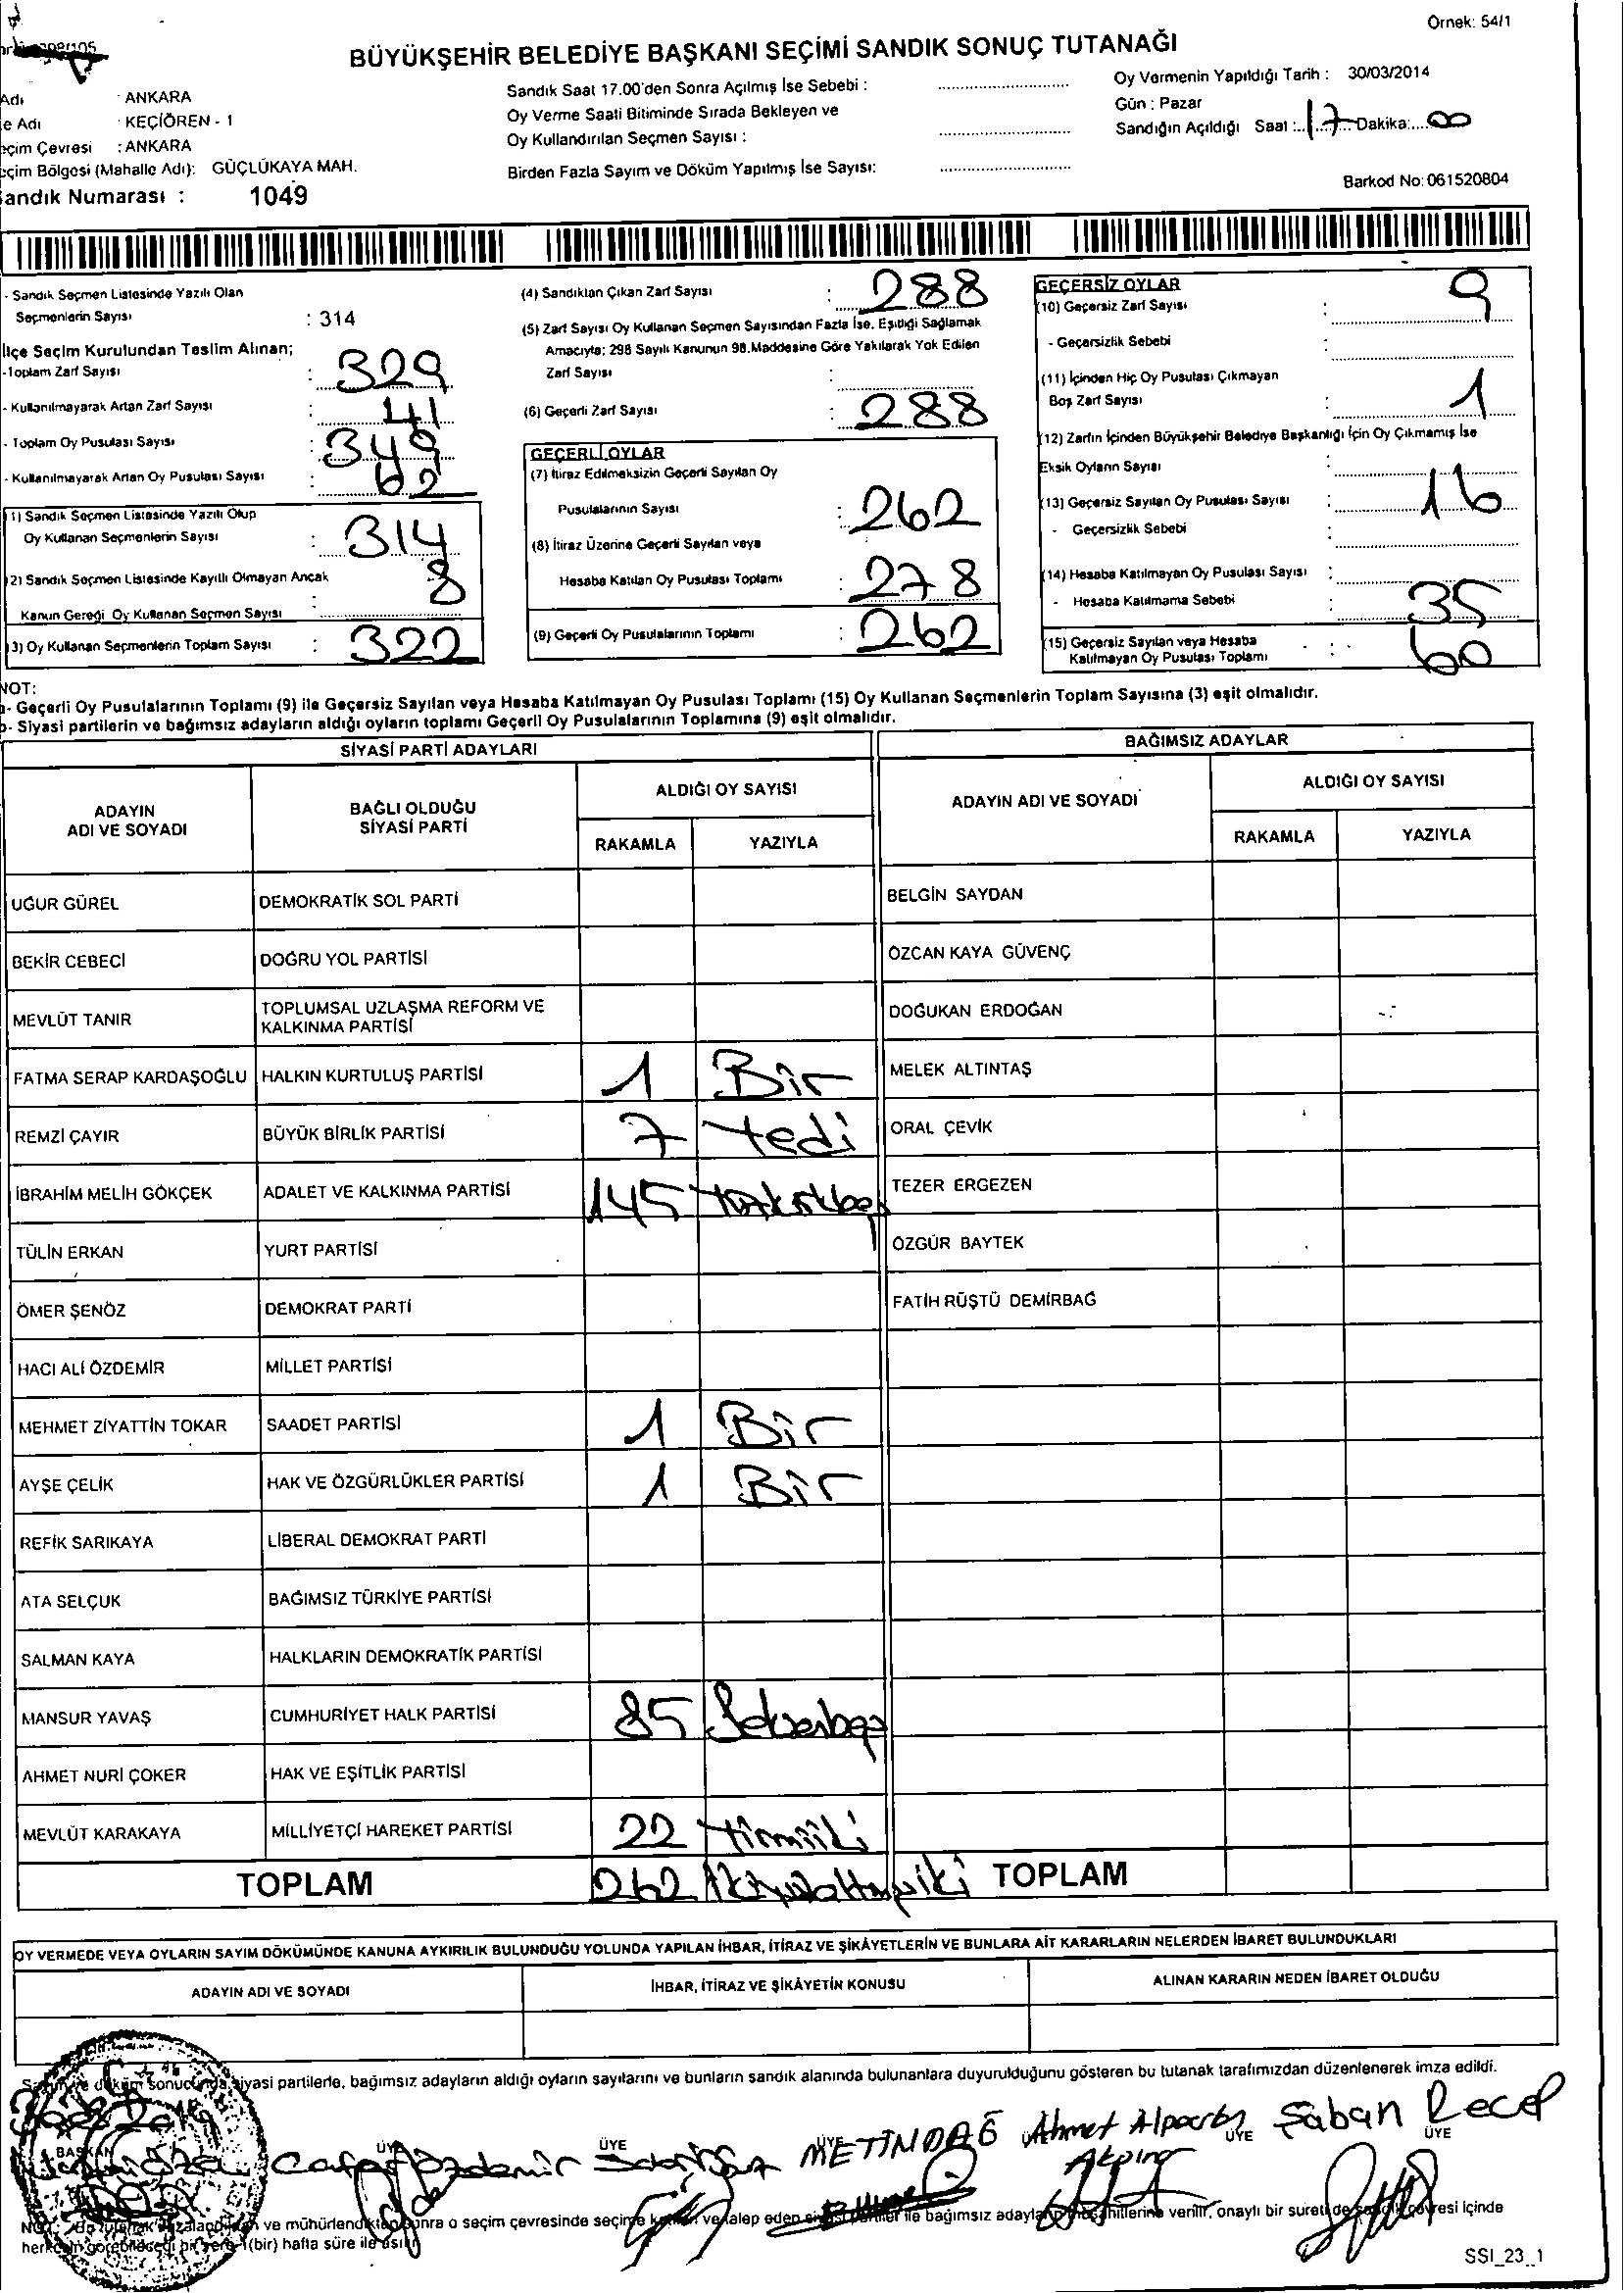 Örnek: 54/1
BÜYÜKŞEHİR BELEDİYE BAŞKANI SEÇİMİ SANDIK SONUÇ TUTANAĞI
Adı : ANKARA
e Adı : KEÇİÖREN - 1
eçim Çevresi : ANKARA
eçim Bölgesi (Mahalle Adı): GÜÇLÜKAYA MAH.
andık Numarası : 1049
Sandık Saat 17.00'den Sonra Açılmış İse Sebebi :
Oy Verme Saati Bitiminde Sırada Bekleyen ve
Oy Kullandırılan Seçmen Sayısı :
Birden Fazla Sayım ve Döküm Yapılmış İse Sayısı:
Oy Vermenin Yapıldığı Tarih : 30/03/2014
Gün : Pazar
Sandığın Açıldığı Saat : 17 Dakika: 00
Barkod No: 061520804
- Sandık Seçmen Listesinde Yazılı Olan
Seçmenlerin Sayısı : 314
İlçe Seçim Kurulundan Teslim Alınan;
-Toplam Zarf Sayısı : 329
- Kullanılmayarak Artan Zarf Sayısı : 41
- Toplam Oy Pusulası Sayısı : 349
- Kullanılmayarak Artan Oy Pusulası Sayısı : 62
1) Sandık Seçmen Listesinde Yazılı Olup
Oy Kullanan Seçmenlerin Sayısı : 314
2) Sandık Seçmen Listesinde Kayıtlı Olmayan Ancak
Kanun Gereği Oy Kullanan Seçmen Sayısı : 8
3) Oy Kullanan Seçmenlerin Toplam Sayısı : 322
(4) Sandıktan Çıkan Zarf Sayısı : 288
(5) Zarf Sayısı Oy Kullanan Seçmen Sayısından Fazla İse, Eşitliği Sağlamak
Amacıyla; 298 Sayılı Kanunun 98.Maddesine Göre Yakılarak Yok Edilen
Zarf Sayısı :
(6) Geçerli Zarf Sayısı : 288
GEÇERLİ OYLAR
(7) İtiraz Edilmeksizin Geçerli Sayılan Oy
Pusulalarının Sayısı : 262
(8) İtiraz Üzerine Geçerli Sayılan veya
Hesaba Katılan Oy Pusulası Toplamı : 278
(9) Geçerli Oy Pusulalarının Toplamı : 262
GEÇERSİZ OYLAR
(10) Geçersiz Zarf Sayısı : 9
- Geçersizlik Sebebi :
(11) İçinden Hiç Oy Pusulası Çıkmayan
Boş Zarf Sayısı : 1
(12) Zarfın İçinden Büyükşehir Belediye Başkanlığı İçin Oy Çıkmamış İse
Eksik Oyların Sayısı :
(13) Geçersiz Sayılan Oy Pusulası Sayısı : 16
- Geçersizlik Sebebi :
(14) Hesaba Katılmayan Oy Pusulası Sayısı :
- Hesaba Katılmama Sebebi : 35
(15) Geçersiz Sayılan veya Hesaba
Katılmayan Oy Pusulası Toplamı : 60
NOT:
a- Geçerli Oy Pusulalarının Toplamı (9) ile Geçersiz Sayılan veya Hesaba Katılmayan Oy Pusulası Toplamı (15) Oy Kullanan Seçmenlerin Toplam Sayısına (3) eşit olmalıdır.
b- Siyasi partilerin ve bağımsız adayların aldığı oyların toplamı Geçerli Oy Pusulalarının Toplamına (9) eşit olmalıdır.
SİYASİ PARTİ ADAYLARI
ADAYIN ADI VE SOYADI
BAĞLI OLDUĞU SİYASİ PARTİ
ALDIĞI OY SAYISI
RAKAMLA YAZIYLA
BAĞIMSIZ ADAYLAR
ADAYIN ADI VE SOYADI
ALDIĞI OY SAYISI
RAKAMLA YAZIYLA
UĞUR GÜREL DEMOKRATİK SOL PARTİ BELGİN SAYDAN
BEKİR CEBECİ DOĞRU YOL PARTİSİ ÖZCAN KAYA GÜVENÇ
MEVLÜT TANIR TOPLUMSAL UZLAŞMA REFORM VE KALKINMA PARTİSİ DOĞUKAN ERDOĞAN
FATMA SERAP KARDAŞOĞLU HALKIN KURTULUŞ PARTİSİ 1 Bir MELEK ALTINTAŞ
REMZİ ÇAYIR BÜYÜK BİRLİK PARTİSİ 7 Yedi ORAL ÇEVİK
İBRAHİM MELİH GÖKÇEK ADALET VE KALKINMA PARTİSİ 145 TEZER ERGEZEN
TÜLİN ERKAN YURT PARTİSİ ÖZGÜR BAYTEK
ÖMER ŞENÖZ DEMOKRAT PARTİ FATİH RÜŞTÜ DEMİRBAĞ
HACI ALİ ÖZDEMİR MİLLET PARTİSİ
MEHMET ZİYATTİN TOKAR SAADET PARTİSİ 1 Bir
AYŞE ÇELİK HAK VE ÖZGÜRLÜKLER PARTİSİ 1 Bir
REFİK SARIKAYA LİBERAL DEMOKRAT PARTİ
ATA SELÇUK BAĞIMSIZ TÜRKİYE PARTİSİ
SALMAN KAYA HALKLARIN DEMOKRATİK PARTİSİ
MANSUR YAVAŞ CUMHURİYET HALK PARTİSİ 85 Seksenbeş
AHMET NURİ ÇOKER HAK VE EŞİTLİK PARTİSİ
MEVLÜT KARAKAYA MİLLİYETÇİ HAREKET PARTİSİ 22 Yirmiiki
TOPLAM 262 ikiyüzaltmışiki TOPLAM
OY VERMEDE VEYA OYLARIN SAYIM DÖKÜMÜNDE KANUNA AYKIRILIK BULUNDUĞU YOLUNDA YAPILAN İHBAR, İTİRAZ VE ŞİKÂYETLERİN VE BUNLARA AİT KARARLARIN NELERDEN İBARET BULUNDUKLARI
ADAYIN ADI VE SOYADI İHBAR, İTİRAZ VE ŞİKÂYETİN KONUSU ALINAN KARARIN NEDEN İBARET OLDUĞU
siyasi partilerle, bağımsız adayların aldığı oyların sayılarını ve bunların sandık alanında bulunanlara duyurulduğunu gösteren bu tutanak tarafımızdan düzenlenerek imza edildi.
BAŞKAN ÜYE ÜYE ÜYE ÜYE ÜYE ÜYE
Cafer Özdemir METİN DAĞ Ahmet Alparslan Akpınar Şaban Recep
ve mühürlendikten sonra o seçim çevresinde seçime katılan ve talep eden siyasi partiler ile bağımsız adayların müşahitlerine verilir, onaylı bir sureti de sandık çevresi içinde
herkesin görebileceği bir yere 1(bir) hafta süre ile asılır.
SSI_23_1